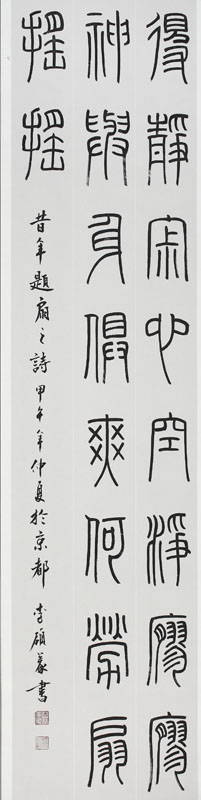 得靜寂心空淨寥寥
神與身俱爽何勞扇
搖搖
昔年題扇之詩甲午年仲夏於京都 李碩義書